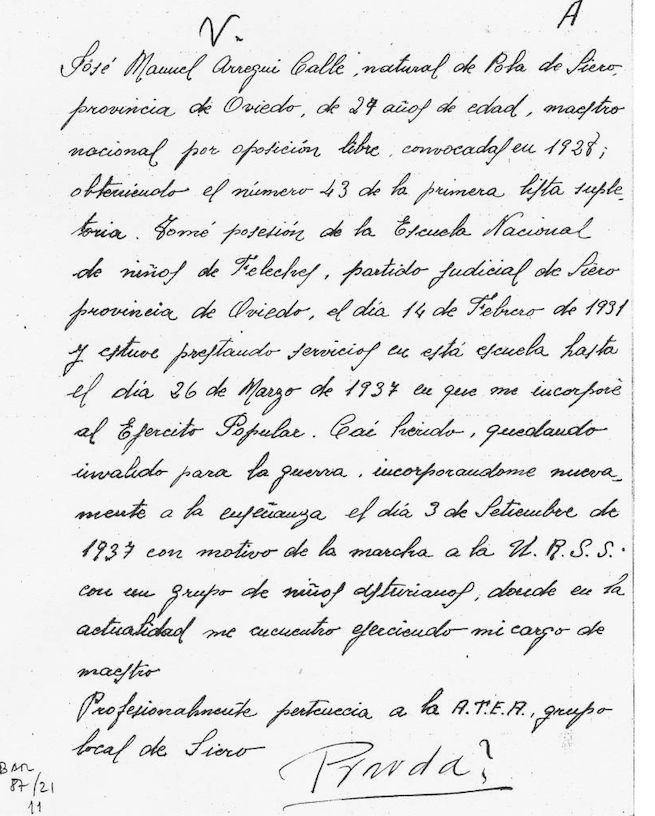 V.
A
José Manuel Arregui Calle, natural de Pola de Siero,
provincia de Oviedo, de 27 años de edad, maestro
nacional por oposición libre, convocadas en 1928;
obteniendo el número 43 de la primera lista suple-
toria. Tomé posesión de la Escuela Nacional
de niños de Feleches, partido judicial de Siero
provincia de Oviedo, el día 14 de Febrero de 1931
y estuve prestando servicios en está escuela hasta
el día 26 de Marzo de 1937 en que me incorporé
al Ejercito Popular. Caí herido, quedando
invalido para la guerra, incorporandome nueva-
mente a la enseñanza el día 3 de Setiembre de
1937 con motivo de la marcha a la U.R.S.S.
con un grupo de niños asturianos, donde en la
actualidad me encuentro ejerciendo mi cargo de
maestro
Profesionalmente pertenecia a la A.T.E.A., grupo
local de Siero
87/21
11